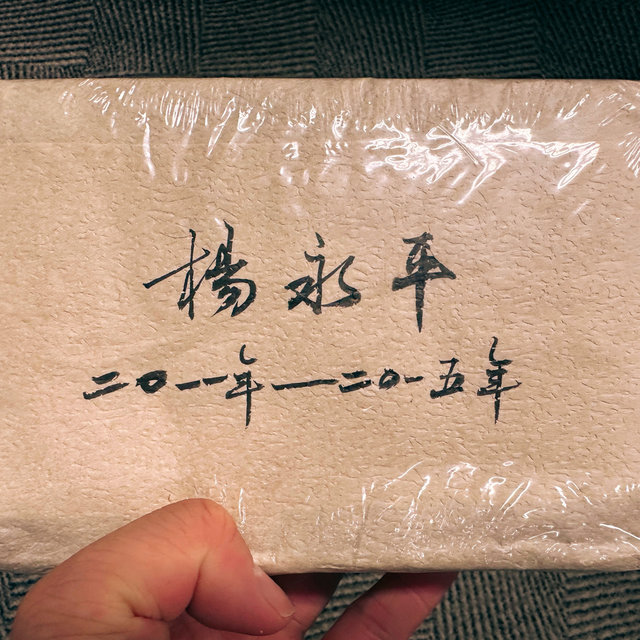 楊永平
二〇一一年——二〇一五年